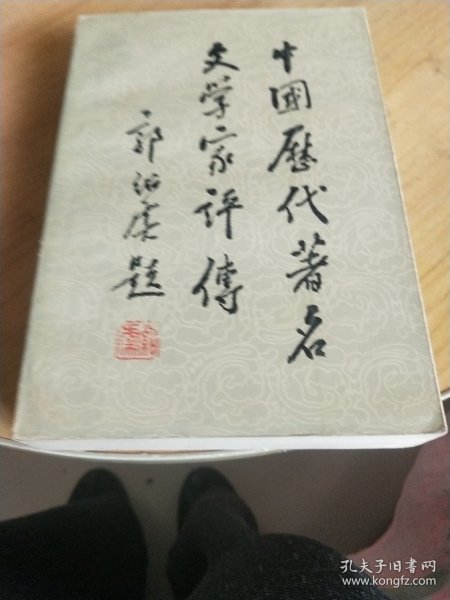 中國歷代著名
文学家评傳
郭绍虞题
孔夫子旧书网
www.kongfz.com